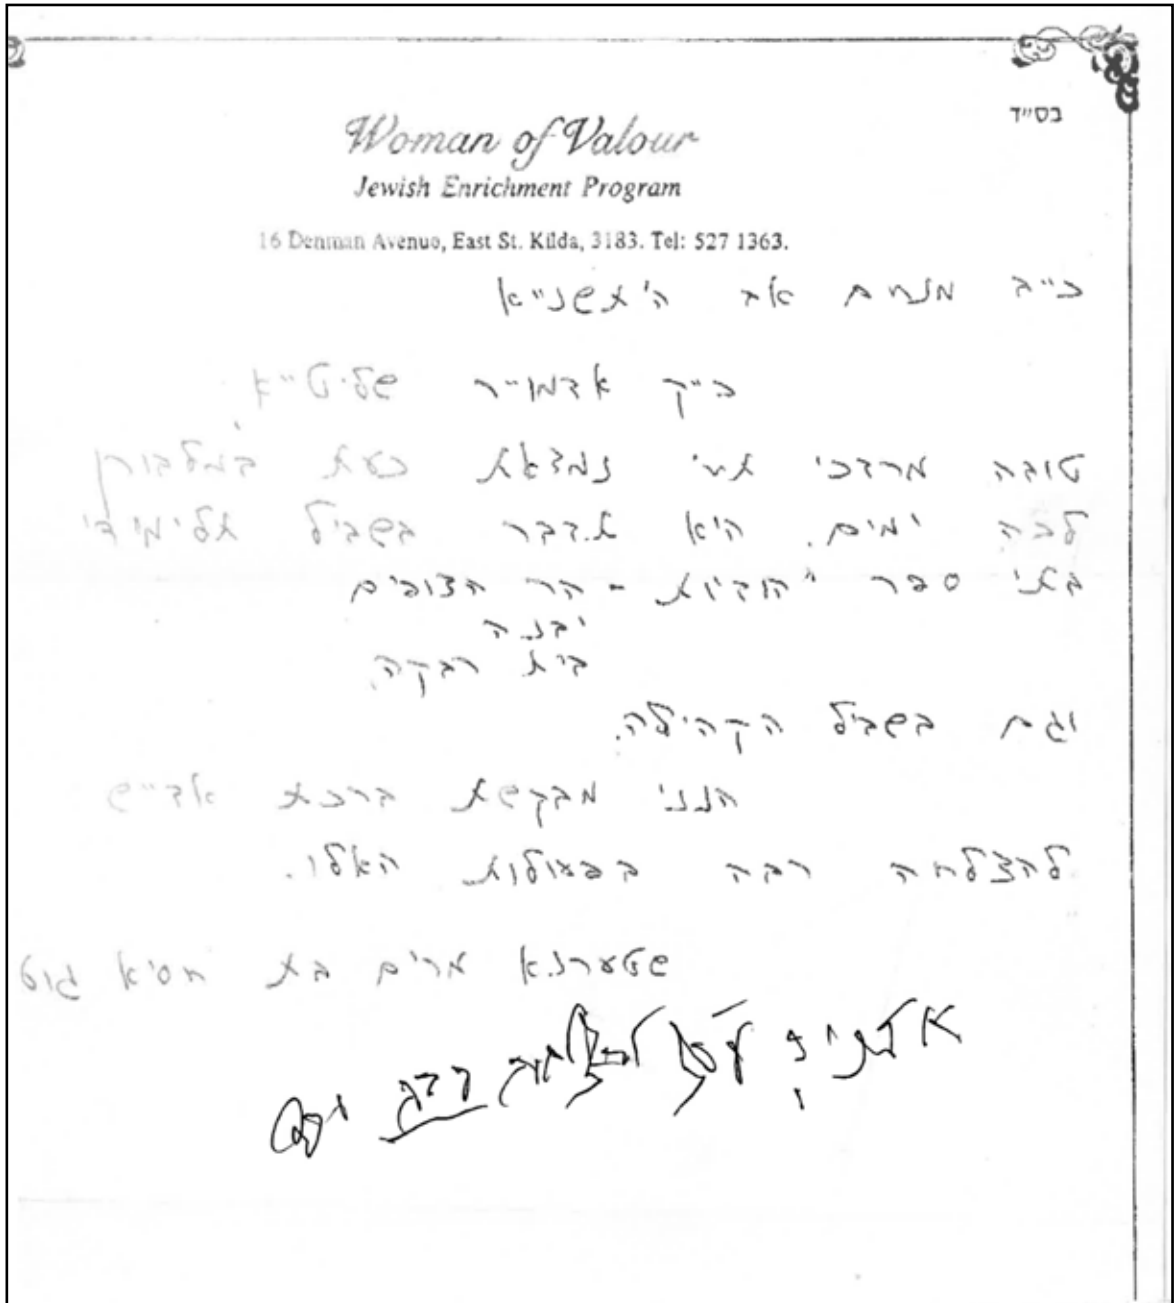 בס"ד
Woman of Valour
Jewish Enrichment Program
16 Denman Avenue, East St. Kilda, 3183. Tel: 527 1363.
כ"ב מנחם אב ה'תשנ"א
כ"ק אדמו"ר שליט"א
טובה מרדכי תחי' נמצאת כעת במלבורן
ימים. היא תדבר בשביל תלימידי
בתי ספר יהודיות - הר הצופים
יבנה
בית רבקה.
וגם בשביל הקהילה.
הנני מבקשת ברכת אד"ש
להצלחה רבה בפעולות האלו.
שטערנא מרים בת חסיא גוט